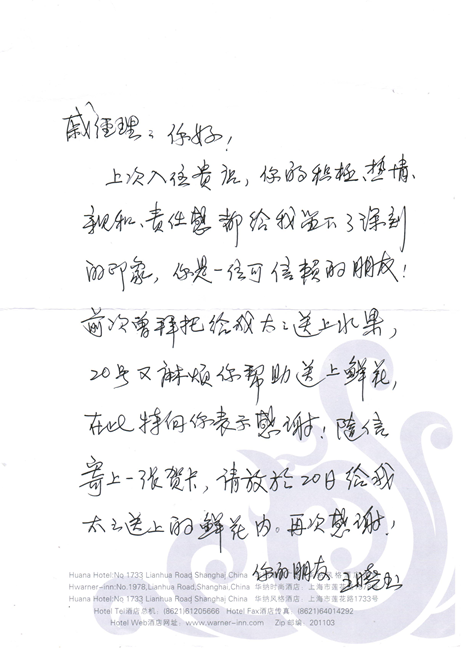 戚经理：你好！
上次入住贵店，你的积极、热情、
亲和、责任感都给我留下了深刻
的印象，你是一位可信赖的朋友！
前次曾拜托给我太太送上水果，
20号又麻烦你帮助送上鲜花，
在此特向你表示感谢！随信
寄上一张贺卡，请放於20日给我
太太送上的鲜花内。再次感谢！
你的朋友 王晓
Huana Hotel:No 1733 Lianhua Road,Shanghai,China
Hwarner-inn:No.1978,Lianhua Road,Shanghai,China 华纳时尚酒店：上海市莲花
Huana Hotel:No 1733 Lianhua Road,Shanghai,China 华纳风格酒店：上海市莲花路1733号
Hotel Tel酒店总机：(8621)61205666 Hotel Fax酒店传真：(8621)64014292
Hotel Web酒店网址：www.warner-inn.com Zip邮编：201103